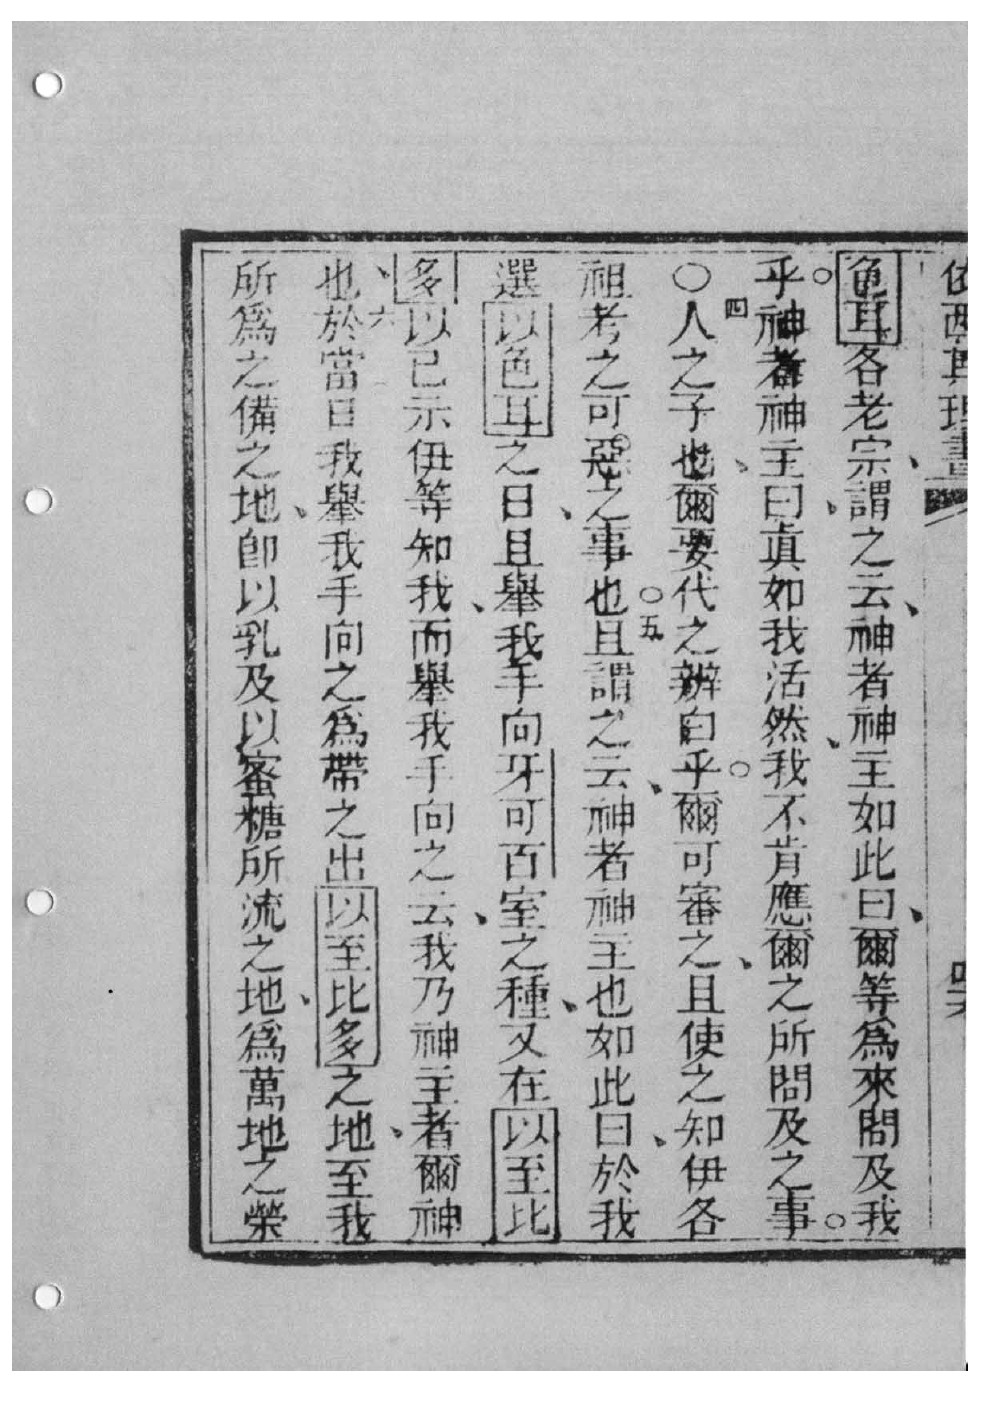 色耳各老宗、謂之云、神者神主如此曰、爾等爲來問及我
乎。神者神主曰、眞如我活然、我不肯應爾之所問及之事。
○四人之子也、爾要代之辨白乎。爾可審之、且使之知伊各
祖考之可惡之事也。○五且謂之云、神者神主也如此曰、於我
選以色耳之日、且舉我手向牙可百室之種、又在以至比
多以已示伊等知我、而舉我手向之云、我乃神主者爾神
也、六於當日我舉我手向之爲帶之出以至比多之地、至我
所爲之備之地、卽以乳及以蜜糖所流之地、爲萬地之榮